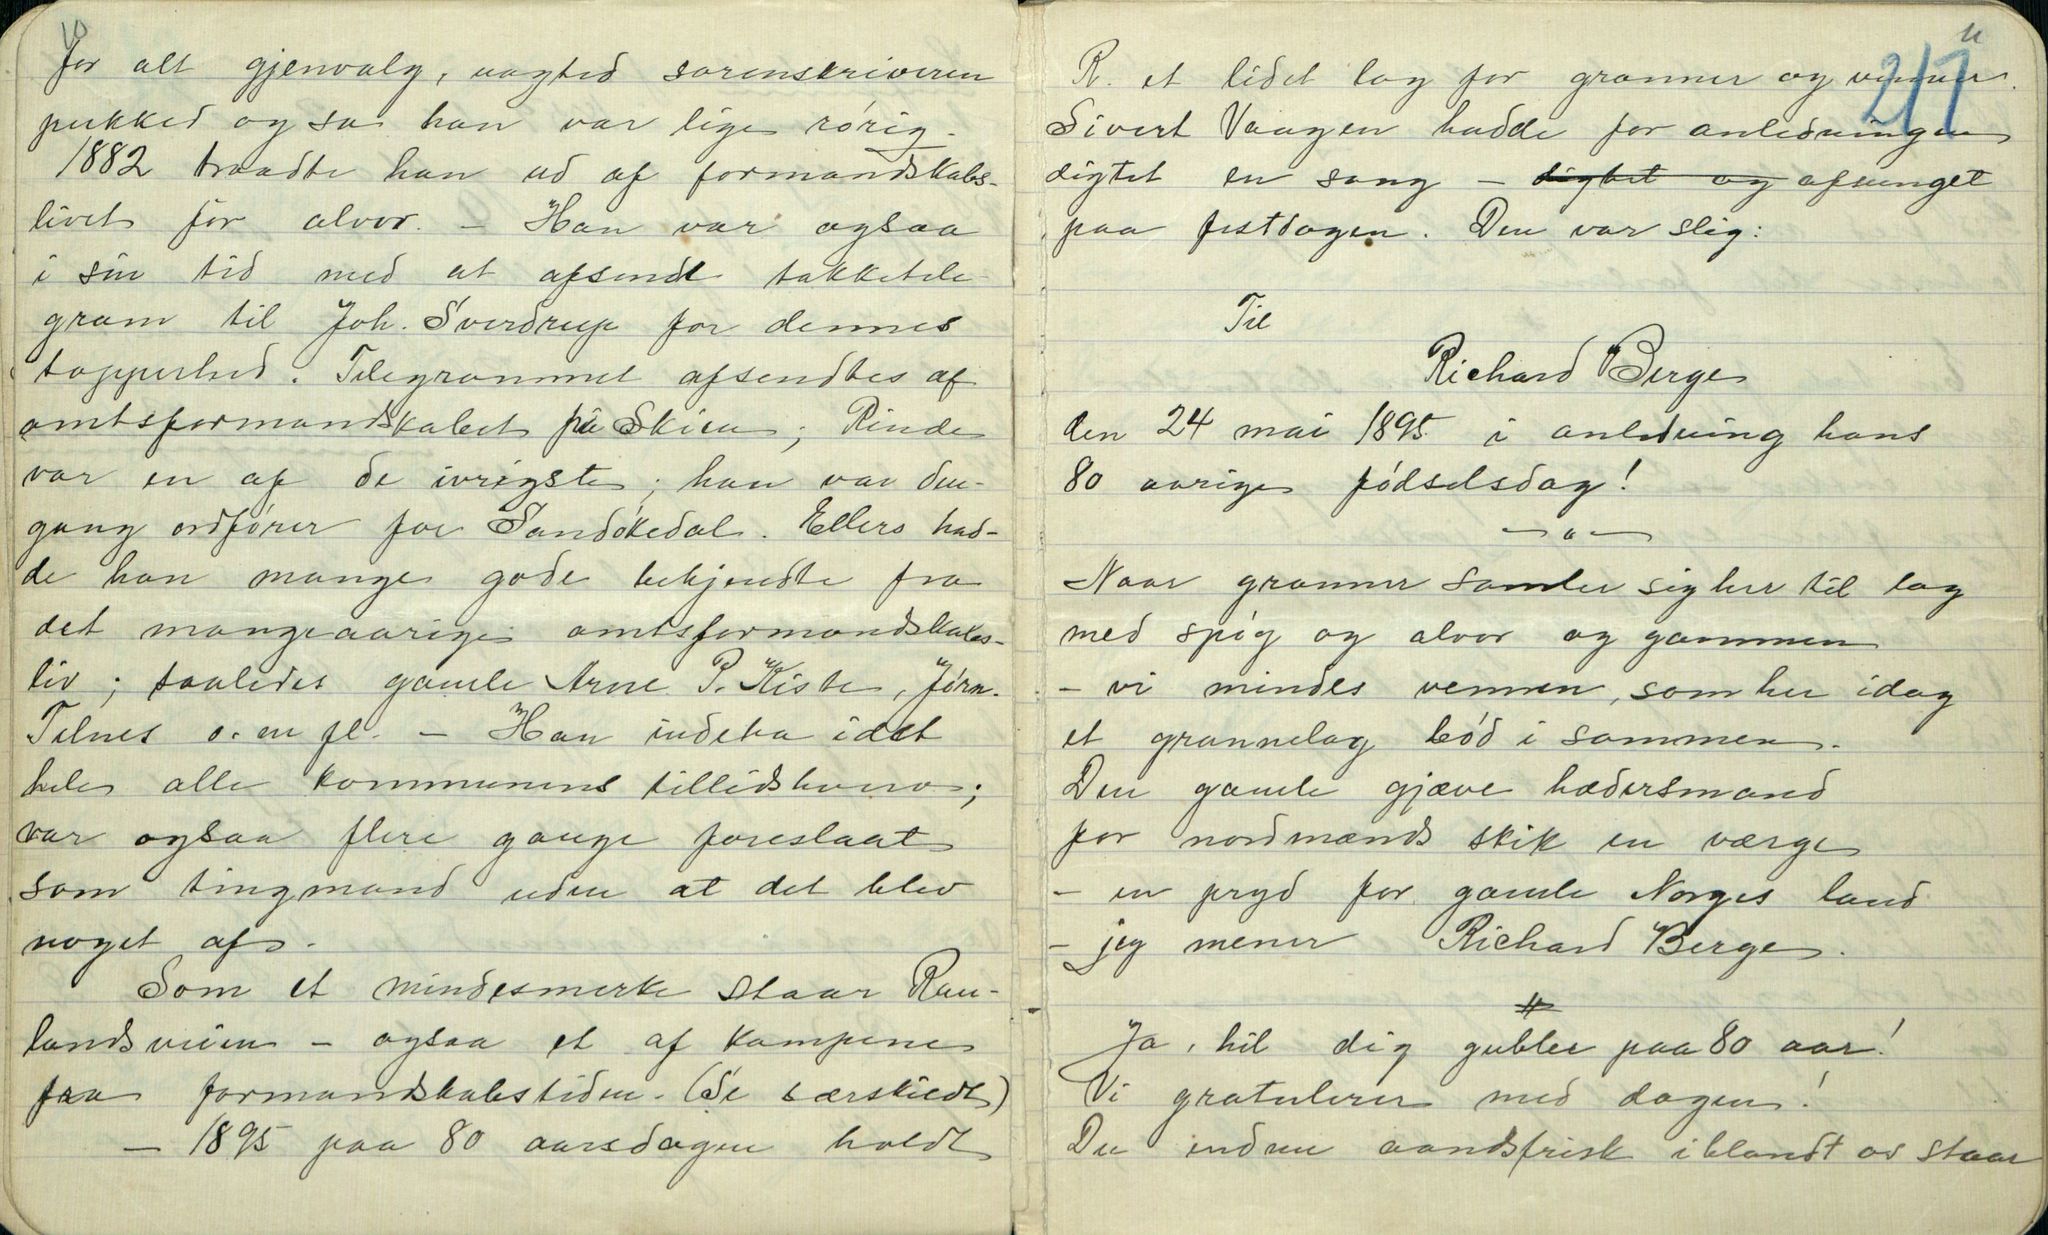 10
for alt gjenvalg, uagted sorenskriveren
pukked og sa han var lige rørig.
1882 traadte han ud af formandskabs-
livet for alvor. – Han var ogsaa
i sin tid med at afsende takketele-
gram til Joh. Sverdrup for dennes
tapperhed. Telegrammet afsendtes af
amtsformandskabet på Skien; Rinde
var en af de ivrigste; han var den-
gang ordfører for Sandøkedal. Ellers had-
de han mange gode bekjendte fra
det mangeaarige amtsformandskabs-
liv; saaledes gamle Arne P. Kiste, Jørn
Tilnes o. en fl. – Han indeha idet
hele alle kommunens tillidshverv;
var ogsaa flere gange foreslaat
som tingmand uden at det blev
noget af.
Som et mindesmerke staar Rau-
landsveien – ogsaa et af kampene
fra formandskabstiden. (Se særskiedt)
– 1895 paa 80 aarsdagen holdt
11
217
R. et lidet lag for granner og venner.
Sivert Vaagen hadde for anledningen
digtet en sang – digtet og afsunget
paa festdagen. Den var slig:
Til
Richard Berge
den 24 mai 1895 i anledning hans
80 aarige fødselsdag!
– " –
Naar granner samler sig her til lag
med spøg og alvor og gammen
– vi mindes vennen, som her idag
et grannelag bød i sammen.
Den gamle gjæve hædersmand
for nordmænds skik en værge
– en pryd for gamle Norges land
– jeg mener Richard Berge.
Ja, hil dig gubbe paa 80 aar!
Vi gratulerer med dagen!
Du endnu aandsfrisk iblandt os staar